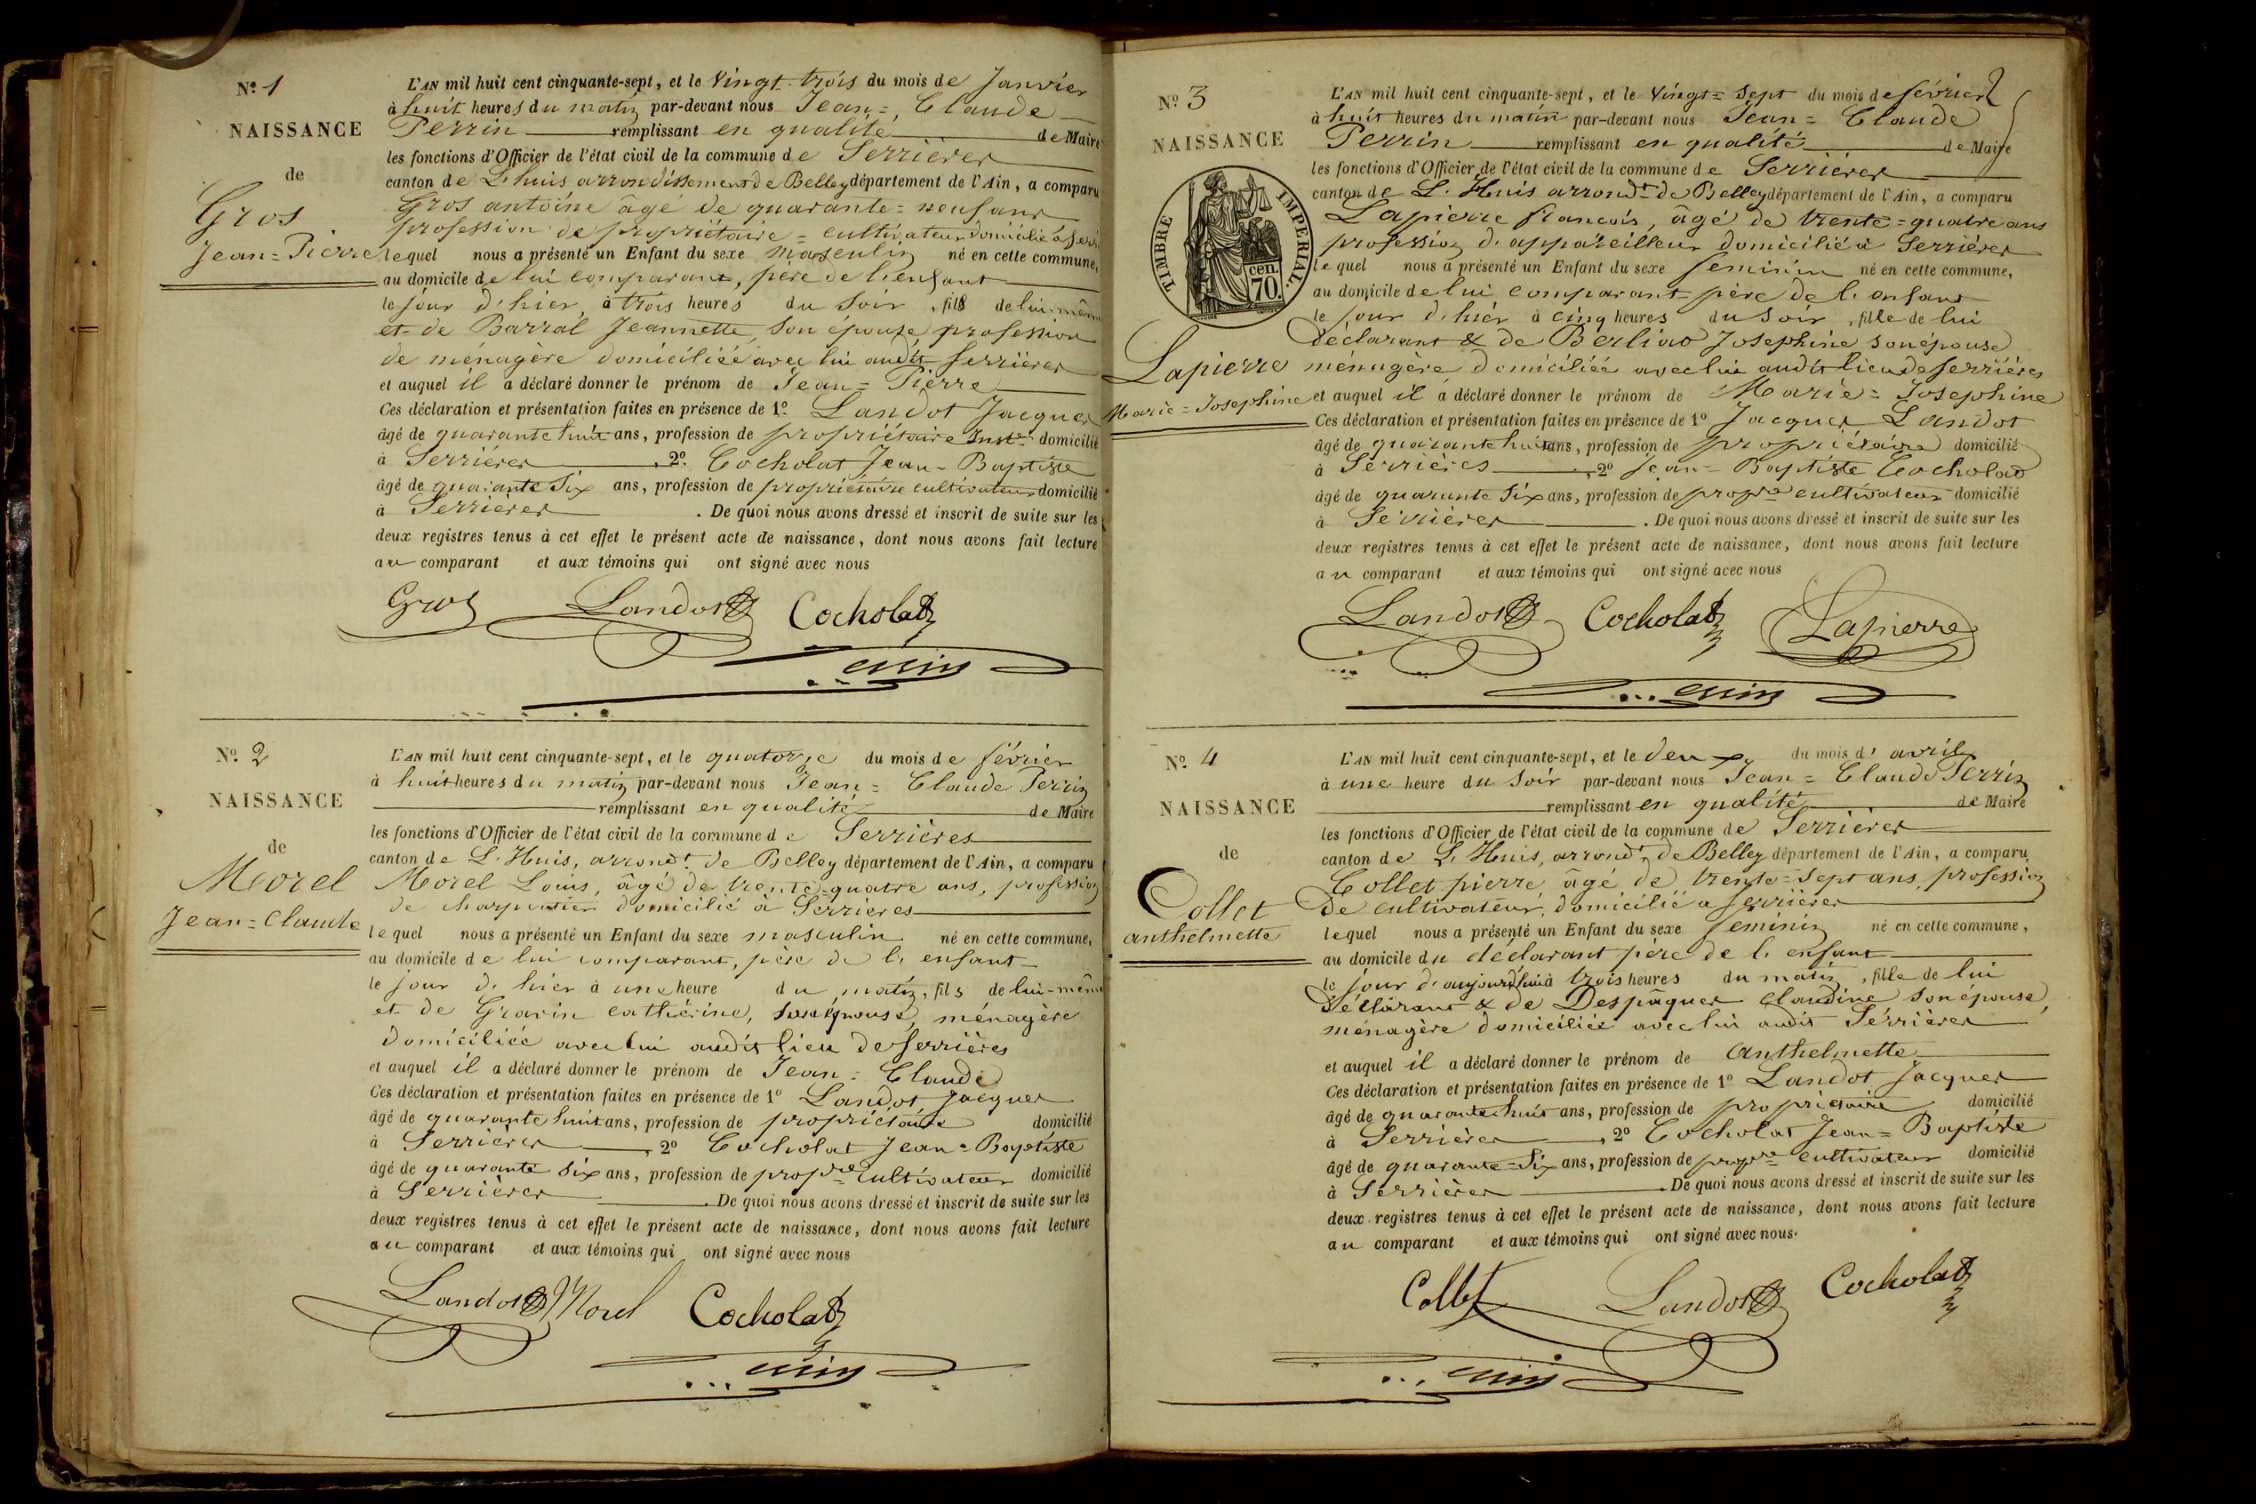 N.º 1
NAISSANCE
de
Gros
Jean=Pierre
L'AN mil huit cent cinquante-sept, et le Vingt-trois du mois de Janvier
à huit heures du matin par-devant nous Jean=Claude
Perrin remplissant en qualité de Maire
les fonctions d'Officier de l'état civil de la commune de Serrières
canton de L'huis arrondissement de Belley département de l'Ain, a comparu
Gros antoine âgé de quarante=neuf ans
profession de propriétaire=cultivateur domicilié à Serr
lequel nous a présenté un Enfant du sexe masculin né en cette commune,
au domicile de lui comparant, père de l'enfant
le jour d'hier, à trois heures du soir, fils de lui-même
et de Barral Jeannette, son épouse profession
de ménagère domiciliée avec lui audit Serrières
et auquel il a déclaré donner le prénom de Jean=Pierre
Ces déclaration et présentation faites en présence de 1º Landot Jacques
âgé de quarante huit ans, profession de propriétaire Instr domicilié
à Serrières, 2º Cocholat Jean-Baptiste
âgé de quarante six ans, profession de propriétaire cultivateur domicilié
à Serrières. De quoi nous avons dressé et inscrit de suite sur les
deux registres tenus à cet effet le présent acte de naissance, dont nous avons fait lecture
au comparant et aux témoins qui ont signé avec nous
Gros Landot Cocholat
N.º 2
NAISSANCE
de
Morel
Jean=Claude
L'AN mil huit cent cinquante-sept, et le quatorze du mois de février
à huit heures du matin par-devant nous Jean=Claude Perrin
remplissant en qualité de Maire
les fonctions d'Officier de l'état civil de la commune de Serrières
canton de L'Huis, arrondt de Belley département de l'Ain, a comparu
Morel Louis, âgé de trente=quatre ans, profession
de charpentier domicilié à Serrières
lequel nous a présenté un Enfant du sexe masculin né en cette commune,
au domicile de lui comparant, père de l'enfant
le jour d'hier à une heure du matin, fils de lui-même
et de Gravin catherine, son épouse, ménagère
domiciliée avec lui audit lieu de Serrières
et auquel il a déclaré donner le prénom de Jean=Claude
Ces déclaration et présentation faites en présence de 1º Landot Jacques
âgé de quarante huit ans, profession de propriétaire domicilié
à Serrières, 2º Cocholat Jean=Baptiste
âgé de quarante six ans, profession de propre cultivateur domicilié
à Serrières. De quoi nous avons dressé et inscrit de suite sur les
deux registres tenus à cet effet le présent acte de naissance, dont nous avons fait lecture
au comparant et aux témoins qui ont signé avec nous
Landot Morel Cocholat
N.º 3
NAISSANCE
TIMBRE IMPÉRIAL.
cen.
70.
Lapierre
Marie=Josephine
L'AN mil huit cent cinquante-sept, et le Vingt=sept du mois de février
à huit heures du matin par-devant nous Jean=Claude
Perrin remplissant en qualité de Maire
les fonctions d'Officier de l'état civil de la commune de Serrières
canton de L'Huis arrondt de Belley département de l'Ain, a comparu
Lapierre francois, âgé de trente=quatre ans
profession d'appareilleur domicilié à Serrières
lequel nous a présenté un Enfant du sexe feminin né en cette commune,
au domicile de lui comparant père de l'enfant
le jour d'hier à cinq heures du soir, fille de lui
déclarant & de Berliao Josephine son épouse
ménagère domiciliée avec lui audit lieu de Serrières
et auquel il a déclaré donner le prénom de Marie=Josephine
Ces déclaration et présentation faites en présence de 1º Jacques Landot
âgé de quarante huit ans, profession de propriétaire domicilié
à Serrières, 2º Jean=Baptiste Cocholat
âgé de quarante six ans, profession de propre cultivateur domicilié
à Serrières. De quoi nous avons dressé et inscrit de suite sur les
deux registres tenus à cet effet le présent acte de naissance, dont nous avons fait lecture
au comparant et aux témoins qui ont signé avec nous
Landot Cocholat Lapierre
N.º 4
NAISSANCE
de
Collet
anthelmette
L'AN mil huit cent cinquante-sept, et le deux du mois d'avril
à une heure du soir par-devant nous Jean=Claude Perrin
remplissant en qualité de Maire
les fonctions d'Officier de l'état civil de la commune de Serrières
canton de L'Huis, arrondt de Belley département de l'Ain, a comparu
Collet pierre, âgé de trente=sept ans, profession
de cultivateur, domicilié à Serrières
lequel nous a présenté un Enfant du sexe feminin né en cette commune,
au domicile du déclarant père de l'enfant
le jour d'aujourd'hui à trois heures du matin, fille de lui
déclarant & de Despâques Claudine son épouse,
ménagère domiciliée avec lui audit Serrières
et auquel il a déclaré donner le prénom de Anthelmette
Ces déclaration et présentation faites en présence de 1º Landot Jacques
âgé de quarante huit ans, profession de propriétaire domicilié
à Serrières, 2º Cocholat Jean=Baptiste
âgé de quarante=six ans, profession de propre cultivateur domicilié
à Serrières. De quoi nous avons dressé et inscrit de suite sur les
deux registres tenus à cet effet le présent acte de naissance, dont nous avons fait lecture
au comparant et aux témoins qui ont signé avec nous.
Collet Landot Cocholat